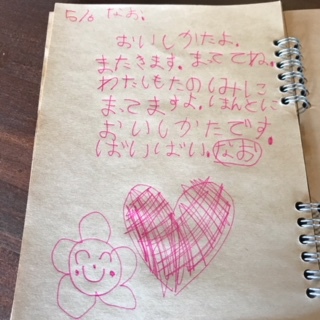 5/6 なお.
おいしかたよ.
またきます。まっててね.
わたしもたのしみにし
まってますよ。ほんとに
おいしかたです。
ばいばい.なお